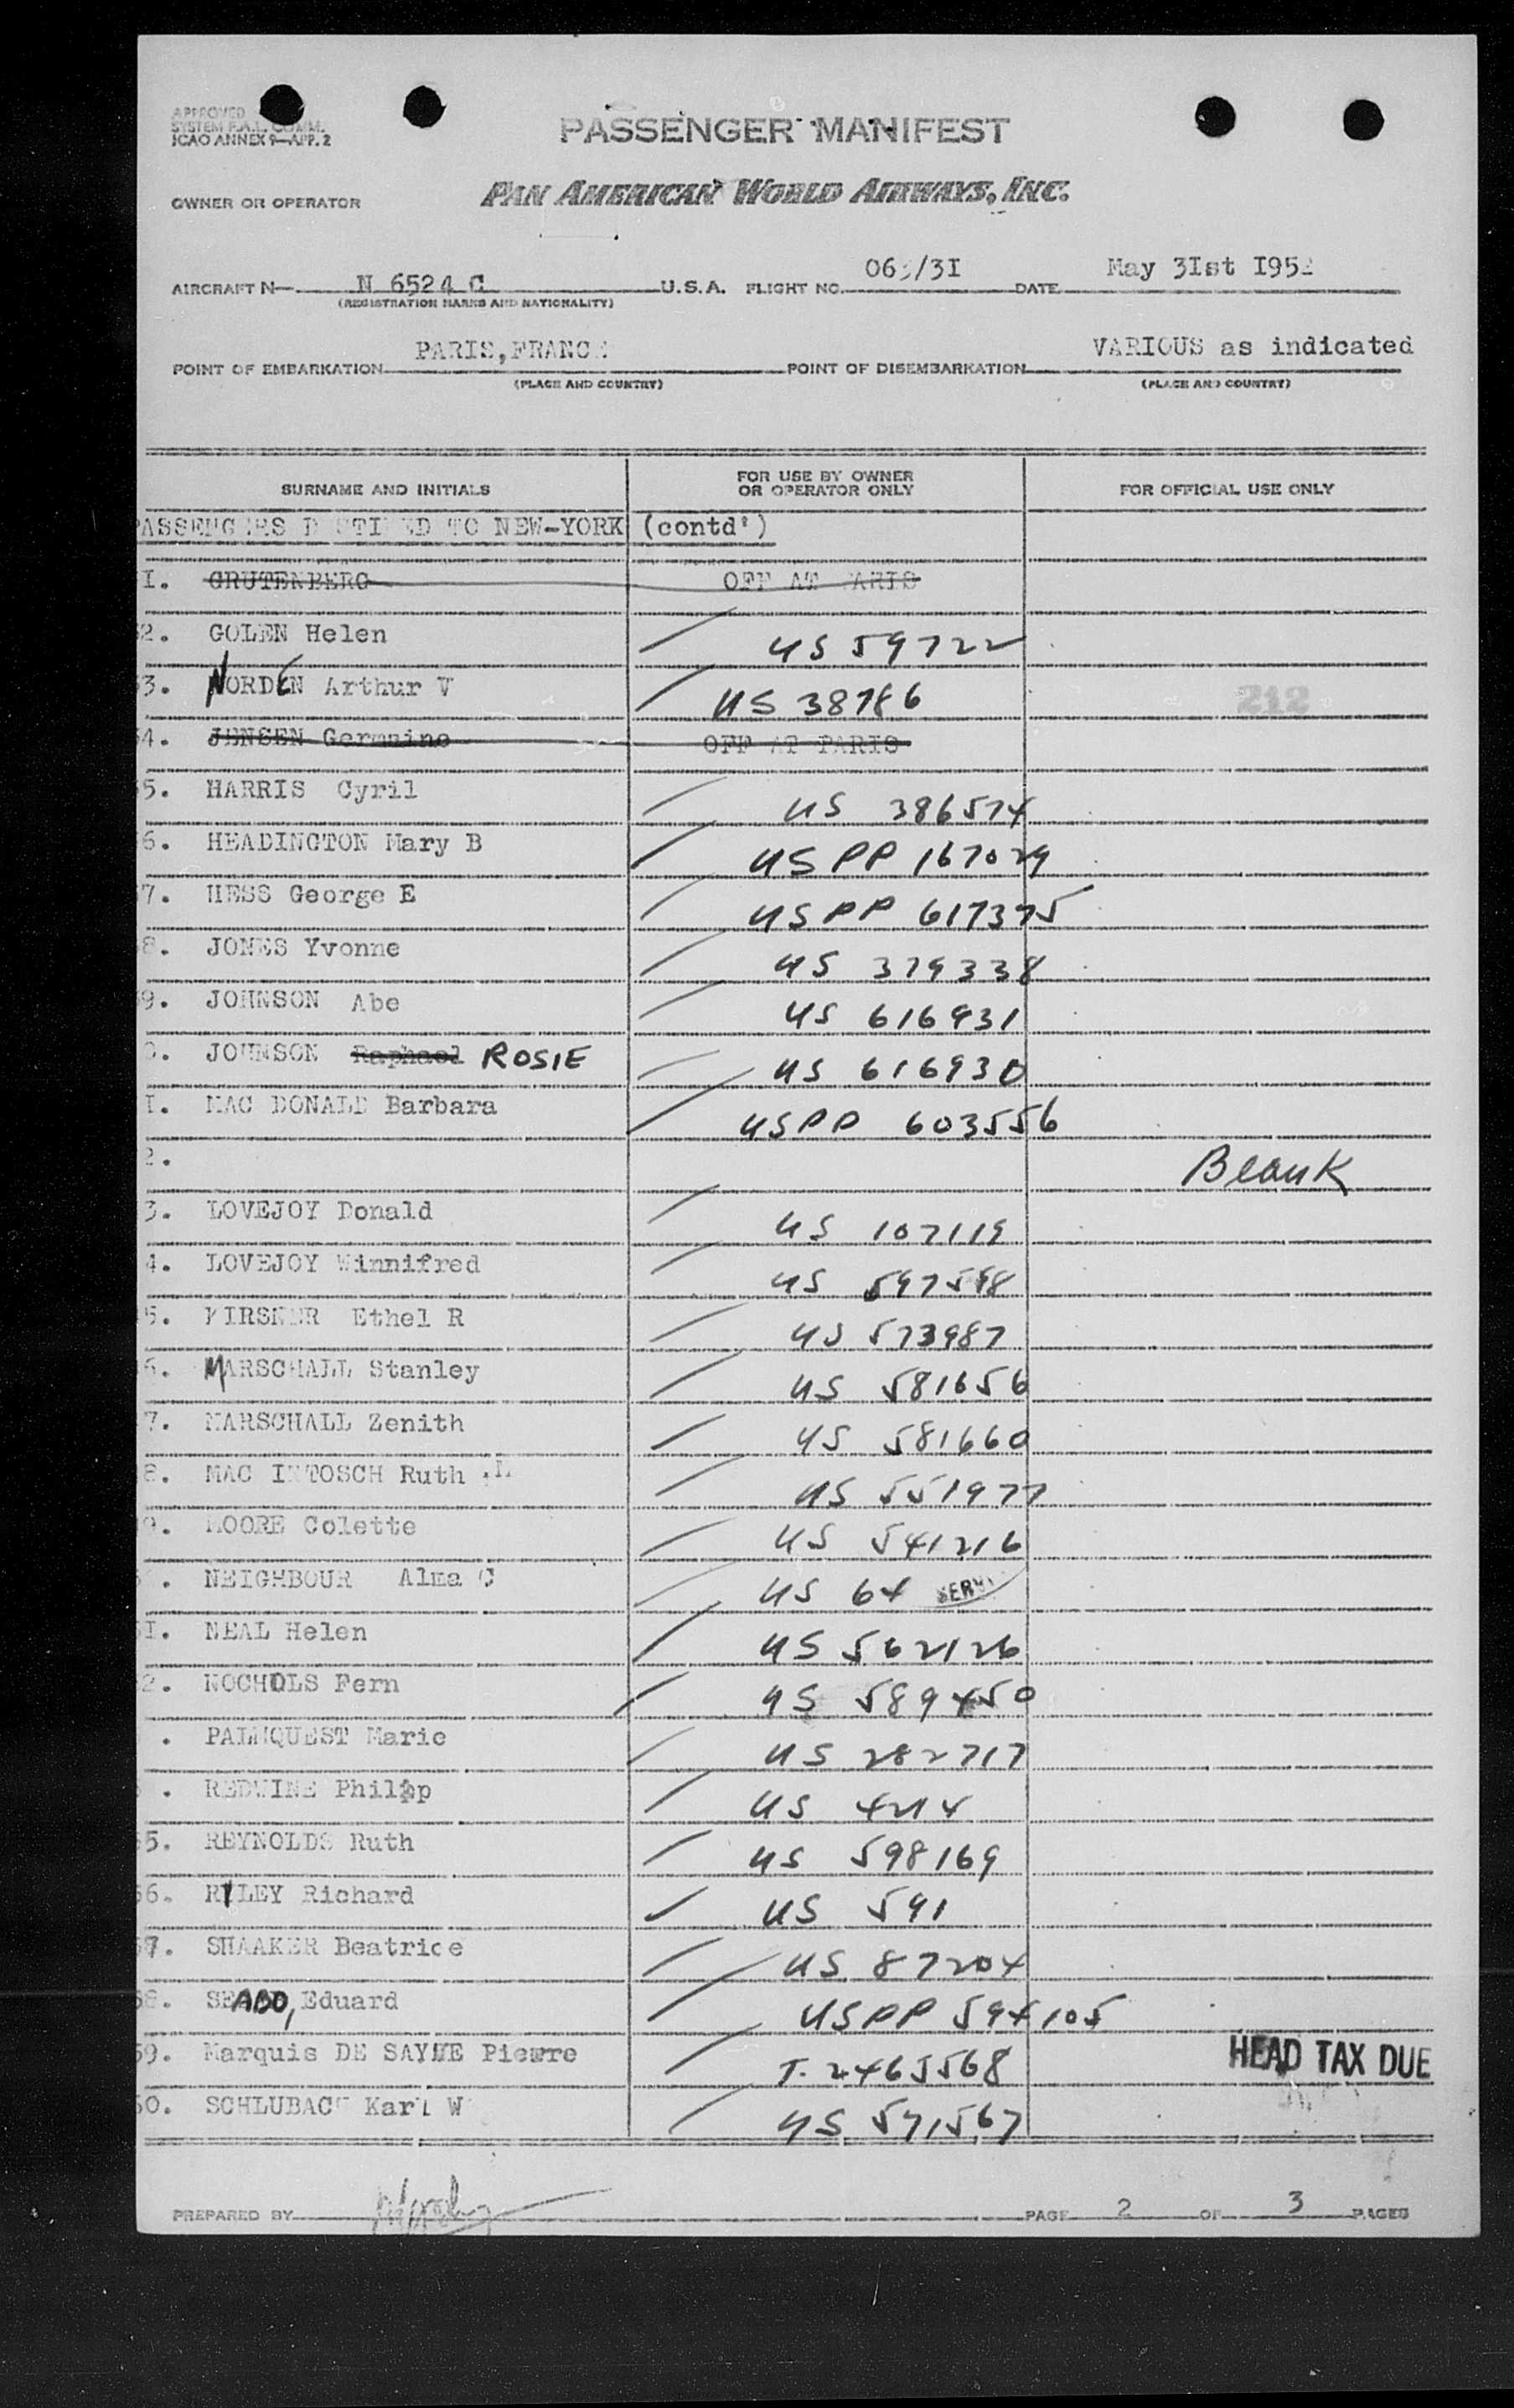 APPROVED
SYSTEM F.A.L. COMM.
ICAO ANNEX 9—APP. 2
PASSENGER MANIFEST
OWNER OR OPERATOR PAN AMERICAN WORLD AIRWAYS, INC.
AIRCRAFT N— N 6524 C U.S.A. FLIGHT NO. /3I DATE May 3Ist I952
(REGISTRATION MARKS AND NATIONALITY)
POINT OF EMBARKATION PARIS, FRANCE POINT OF DISEMBARKATION VARIOUS as indicated
(PLACE AND COUNTRY) (PLACE AND COUNTRY)
SURNAME AND INITIALS FOR USE BY OWNER OR OPERATOR ONLY FOR OFFICIAL USE ONLY
PASSENGERS DESTINED TO NEW-YORK (contd')
I. GRUTENBERG OFF AT PARIS
2. GOLEN Helen US 59722
3. NORDEN Arthur V US 38786 212
4. JENSEN Germaine OFF AT PARIS
5. HARRIS Cyril US 386574
6. HEADINGTON Mary B US PP 167029
7. HESS George E US PP 617375
8. JONES Yvonne US 379338
9. JOHNSON Abe US 616931
0. JOHNSON Raphael ROSIE US 616930
I. MAC DONALD Barbara US PP 603556
2. Blank
3. LOVEJOY Donald US 107119
4. LOVEJOY Winnifred US 597598
5. KIRSNER Ethel R US 573987
6. MARSCHALL Stanley US 581656
7. MARSCHALL Zenith US 581660
8. MAC INTOSCH Ruth L US 551977
9. MOORE Colette US 541216
. NEIGHBOUR Alma C US 64
I. NEAL Helen US 562126
2. NOCHOLS Fern US 589450
. PALMQUEST Marie US 282717
. REDWINE Philip US 4214
5. REYNOLDS Ruth US 598169
56. RYLEY Richard US 591
57. SHAAKER Beatrice US 87204
58. SEABO, Eduard US PP 594105
59. Marquis DE SAYVE Pierre T. 2465568 HEAD TAX DUE
60. SCHLUBACH Karl W US 571567
PREPARED BY PAGE 2 OF 3 PAGES